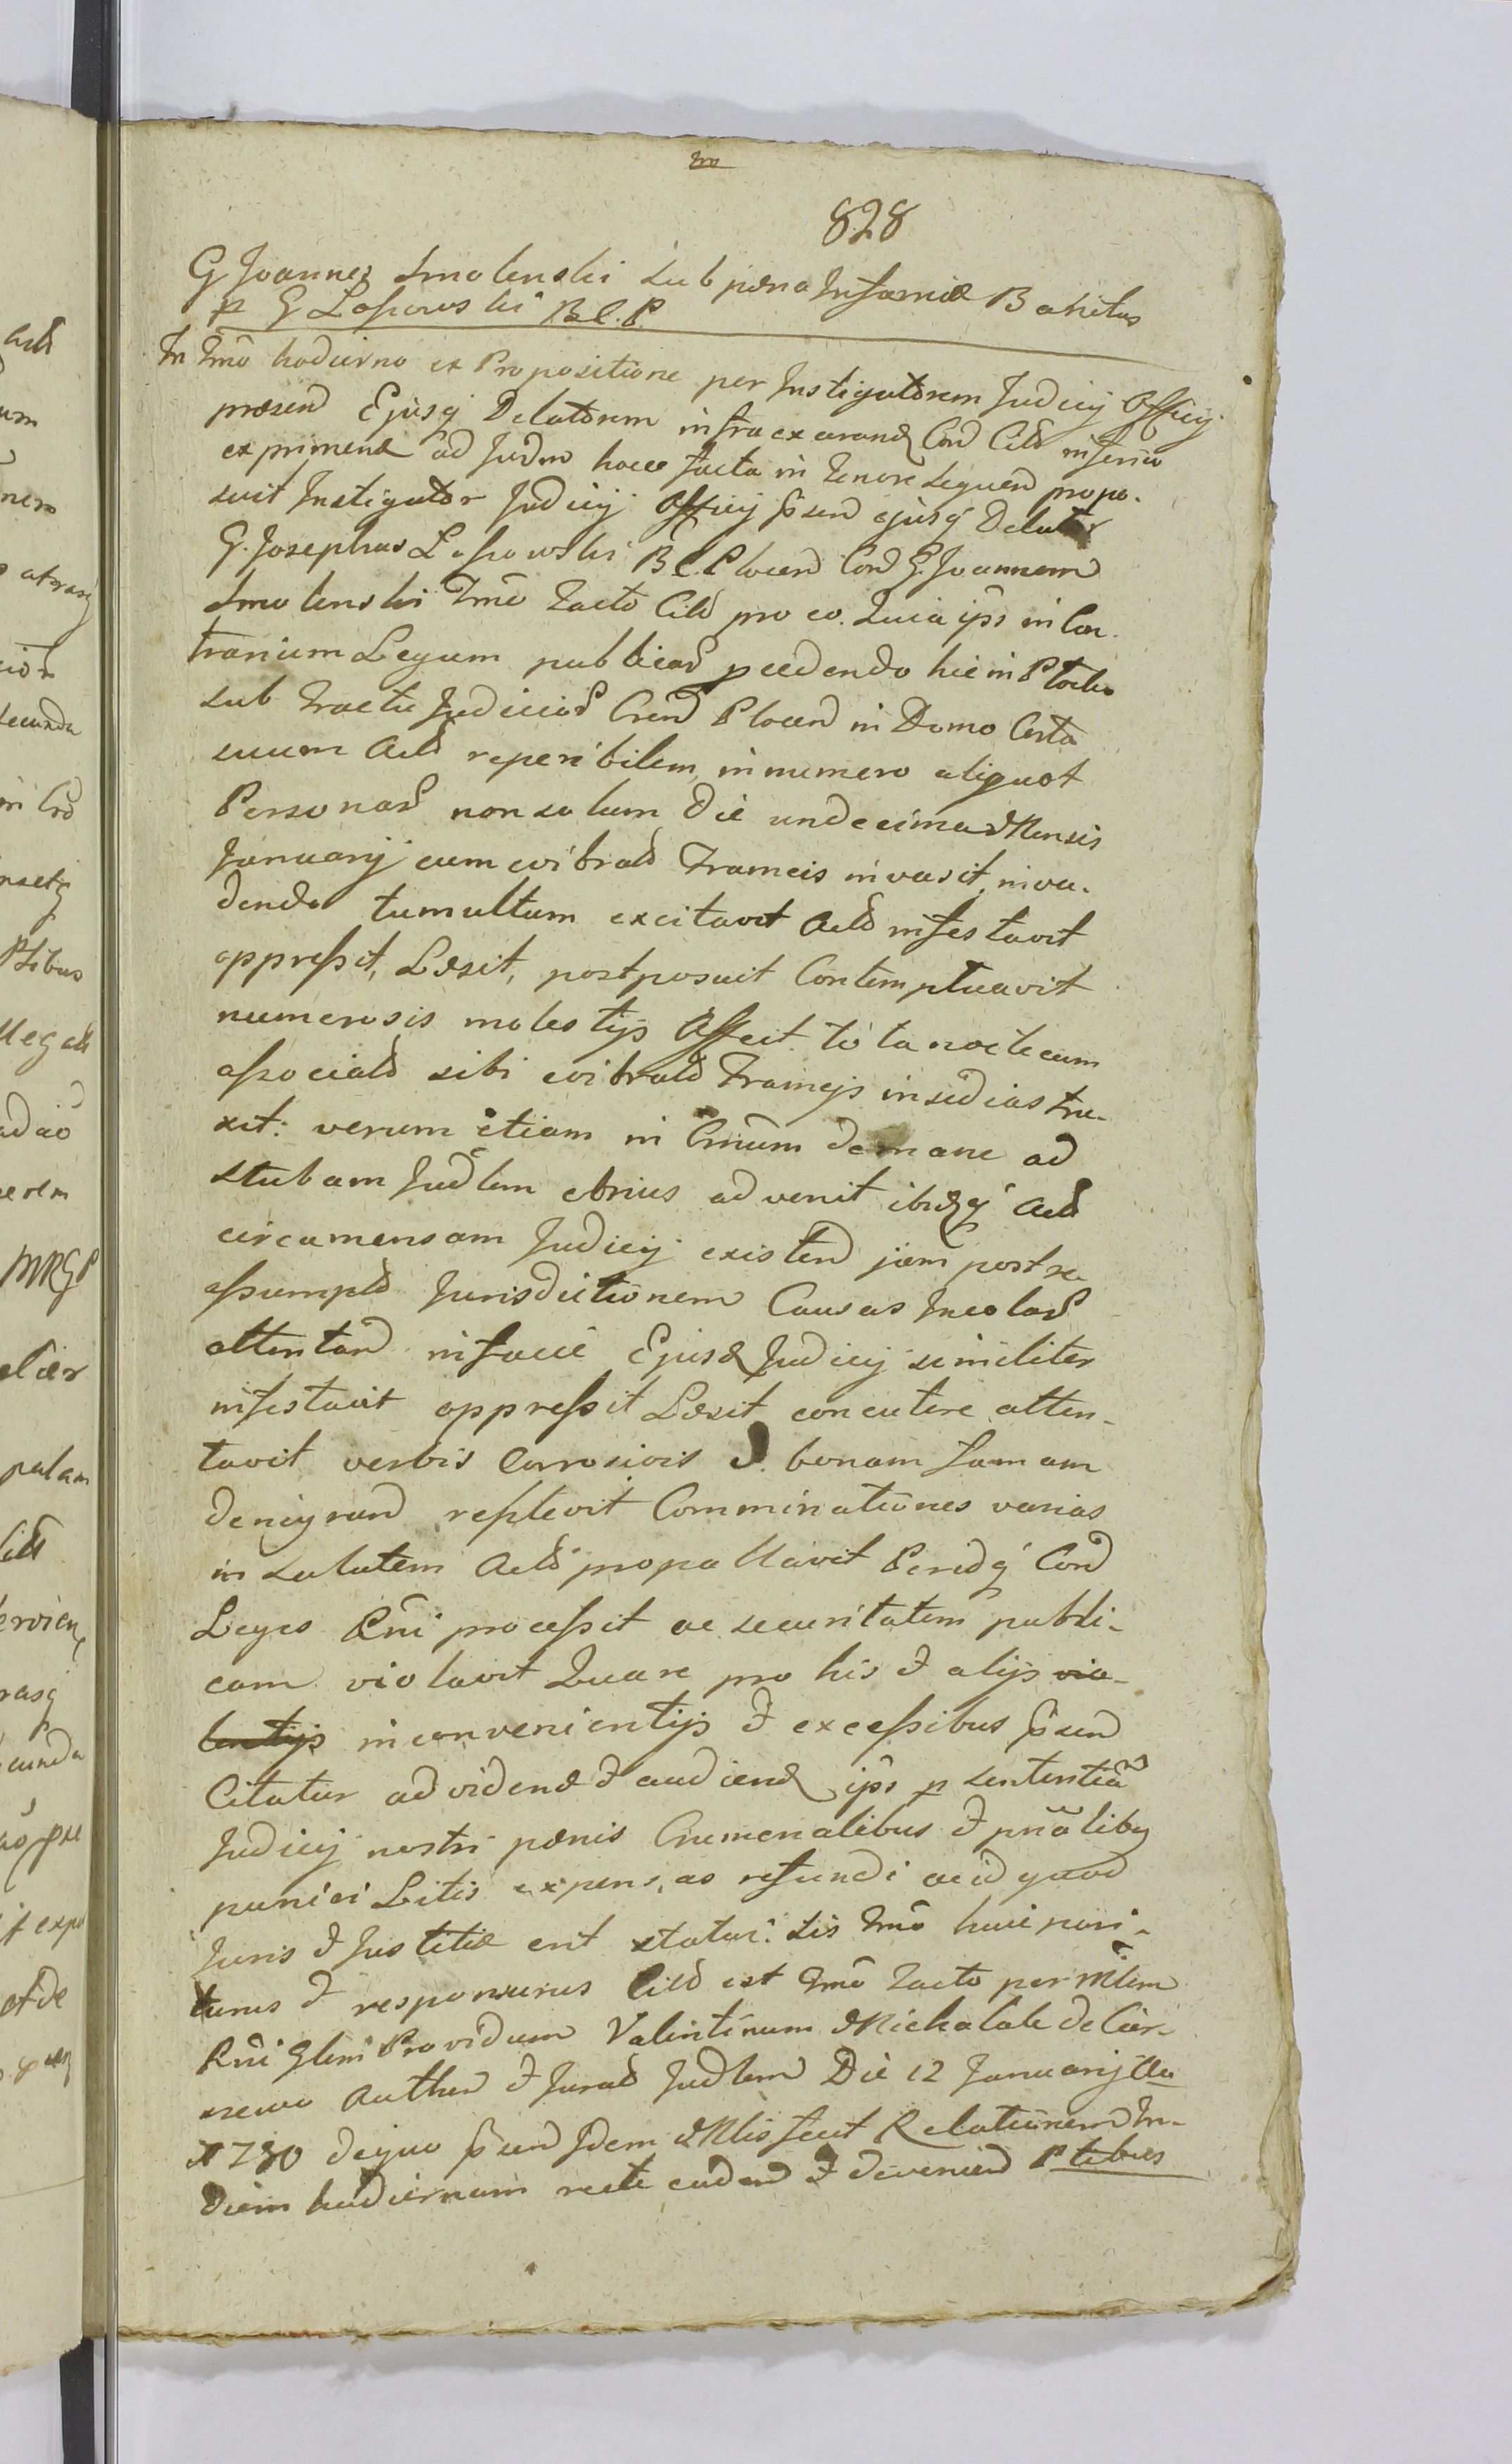 828
G Joannes Smolenski sub pæna Infamiæ Banitus
p G Lassowski B.C.P.
In Tmo hodierno ex Propositione per Instigatorem Judicij Officij
præsen Ejusq Delatorem infra exarand Con Citt inferiu
expriment ad Judm hocce facta in Tenore sequen propo-
suit Instigator Judicij Officij psen ejusq Delator
G. Josephus Lassowski B C. Plocen Con G. Joannem
Smolenski Tmo Tacto Citt pro eo. Quia ips in Con-
trarium Legum publicar pcedendo hic in Plocko
sub Tractu Judicior Cren Plocen in Domo Certa
suum Actt reperibilem, in numero aliquot
Personar non solum Die undecima Mensis
Januarij cum evibratt Frameis invasit, inva-
dendo tumultum excitavit Actt infestavit
oppressit, Læsit, postposuit Contemptuavit
numerosis molestijs Affecit. tota nocte cum
associatt sibi evibratt Frameijs insidias stru-
xit: verum etiam in Crinum de mane ad
stubam Judlem ebrius advenit ibidq Actt
circa mensam Judicij existen jam post re
assumptt Jurisdictionem Causas Incolar
attentan in facie Ejusd Judicij similiter
infestavit oppressit Læsit concutere atten-
tavit verbis Corrosivis & bonam famam
denigran replevit Comminationes varias
in salutem Actt propallavit Peridq Con
Leges Rni processit ac securitatem publi-
cam violavit Quare pro his & alijs vio-
lentijs inconvenientijs & excessibus psen
Citatur ad vidend & audiend ips p sententiam
Judicij nostri pænis Crimenalibus & pnalibq
puniri Litis expens, as refundi ac id quod
Juris & Justitiæ erit statui. sis Tmo huic pari-
turus & responsurus Citt est Tmo Tacto per Mlem
Rni Glem Providum Valentinum Michalak de Cier-
szewo Authen & Jurat Judlem Die 12 Januarij Au
1780 de quo psen Idem Mlis fecit Relationem In
Diem hodiernam recte caden & devenien Ptibus